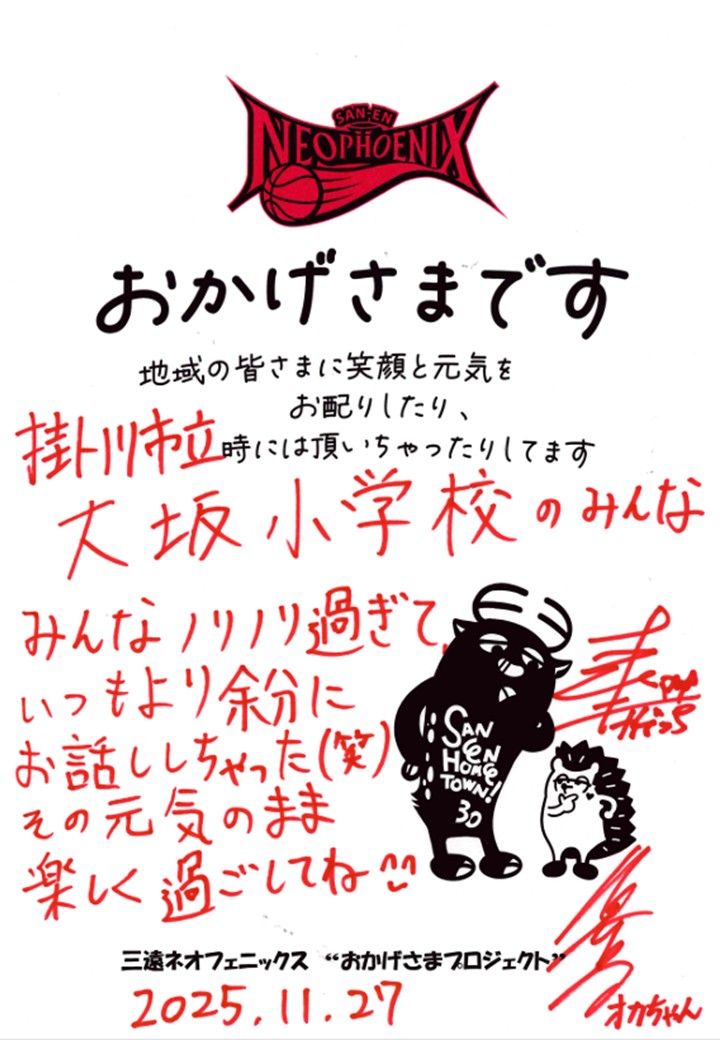 SAN-EN
NEOPHOENIX
おかげさまです
地域の皆さまに笑顔と元気を
お配りしたり、
時には頂いちゃったりしてます
掛川市立
大坂小学校のみんな
みんなノリノリ過ぎて、
いつもより余分に
お話ししちゃった(笑)
その元気のまま
楽しく過ごしてね
SAN
EN
HOME
TOWN!
30
三遠ネオフェニックス “おかげさまプロジェクト”
オカちゃん
2025.11.27